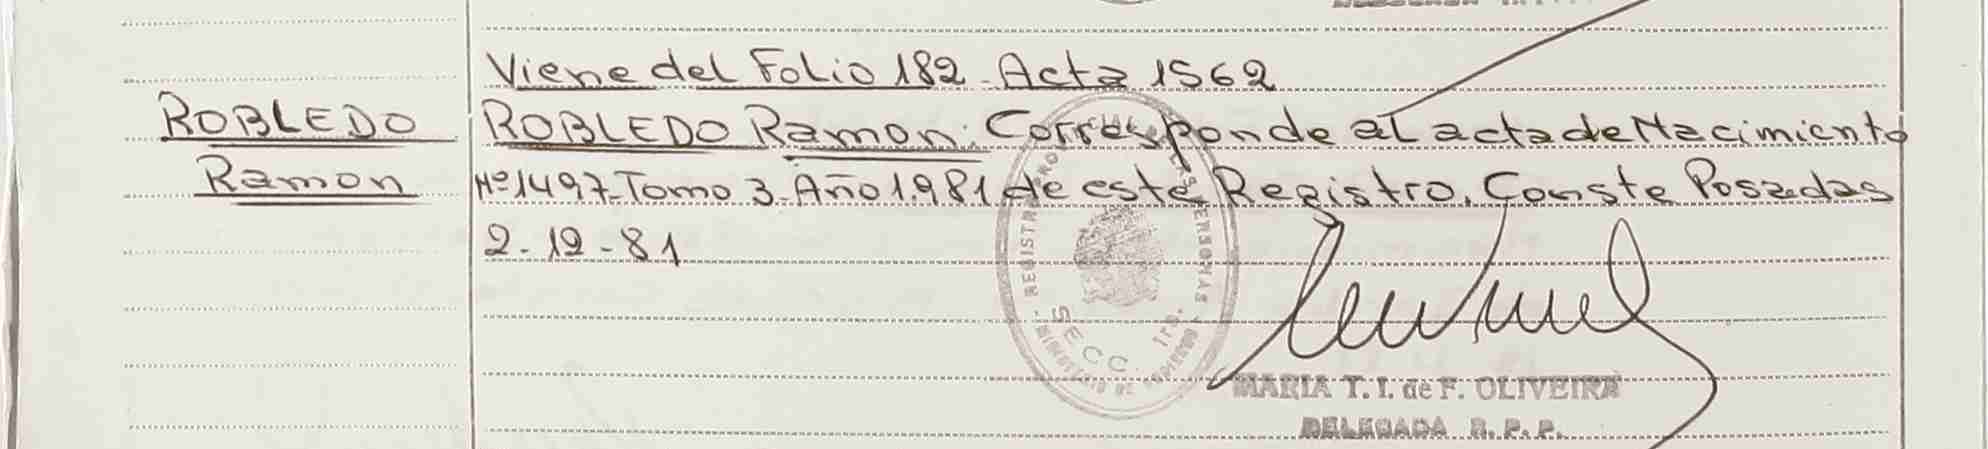 Viene del Folio 182 - Acta 1562
ROBLEDO
Ramon
ROBLEDO Ramon: Corresponde al acta de Nacimiento
Nº 1497 - Tomo 3 - Año 1.981 de este Registro. Conste Posadas
2 - 12 - 81
REGISTRO PERSONAS
SECC. 1ra.
MINISTERIO DE GOBIERNO
MARIA T. I. de F. OLIVEIRA
DELEGADA R. P. P.